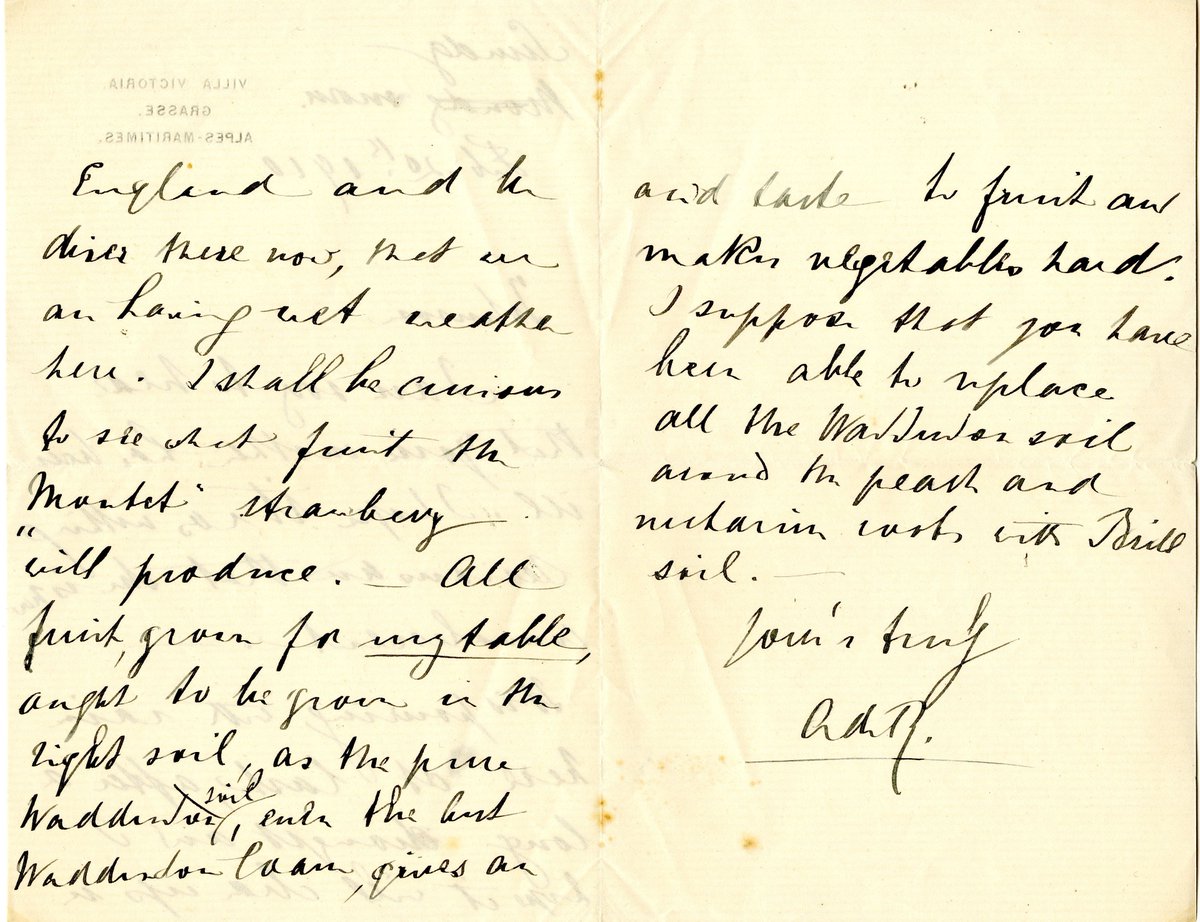 VILLA VICTORIA.
GRASSE.
ALPES-MARITIMES.
England and be
drier there now, that we
are having wet weather
here. I shall be curious
to see what fruit the
"Montet" strawberry
will produce. — All
fruit, grown for my table,
ought to be grown in the
right soil, as the pure
Waddesdon soil, even the best
Waddesdon loam, gives an
acid taste to fruit and
makes vegetables hard.
I suppose that you have
been able to replace
all the Waddesdon soil
around the peach and
nectarine roots with Brill
soil. —
Yours truly
AdeR.